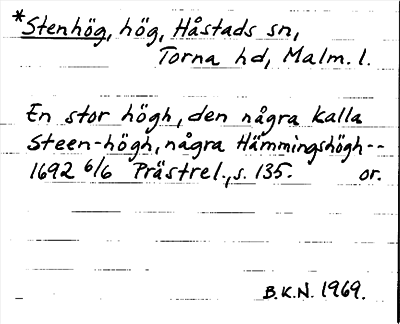 *Stenhög, hög, Håstads sn,
Torna hd, Malm. l.
En stor högh, den några kalla
Steen-högh, några Hämmingshögh--
1692 6/6 Prästrel., s. 135. or.
B.K.N. 1969.